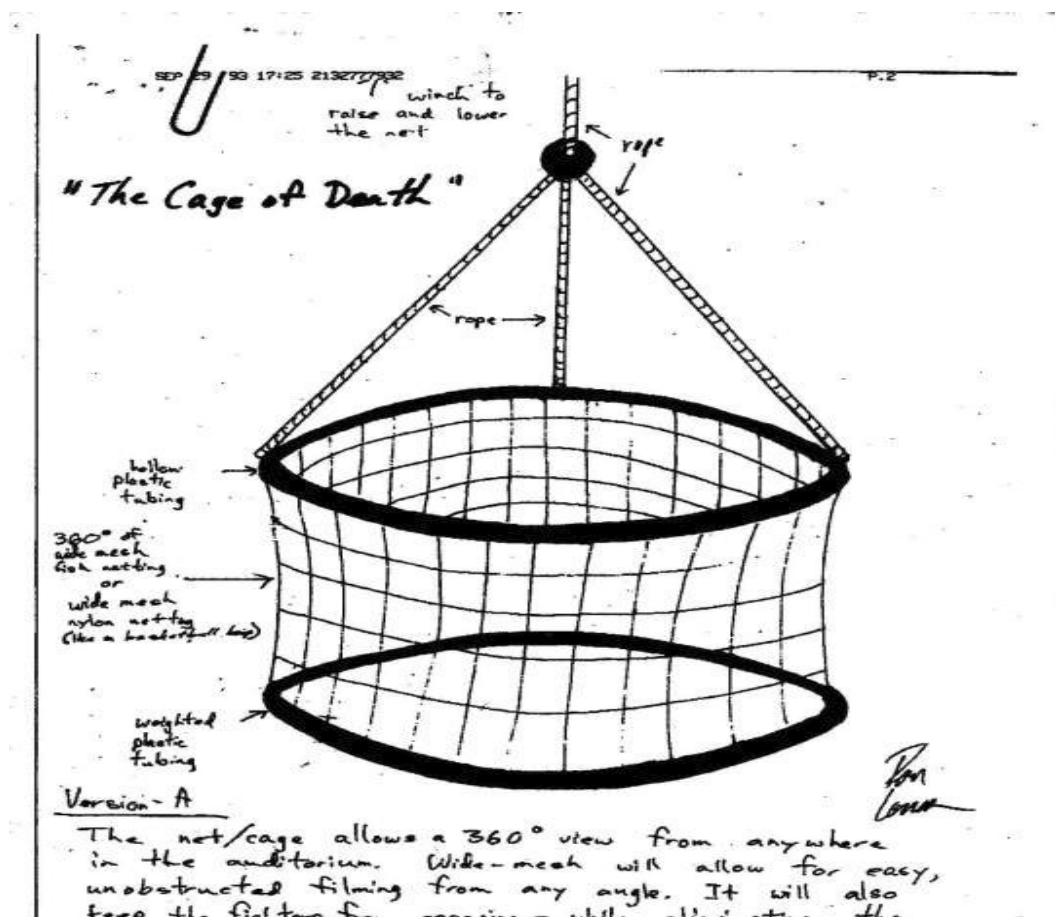 SEP 29 '93 17:25 2132777932
P.2
winch to
raise and lower
the net
rope
"The Cage of Death"
rope
hollow
plastic
tubing
360° of
wide mesh
fish netting
or
wide mesh
nylon netting
(like a basketball hoop)
weighted
plastic
tubing
Version - A
The net/cage allows a 360° view from anywhere
in the auditorium. Wide-mesh will allow for easy,
unobstructed filming from any angle. It will also
keep the fighters from escaping while eliminating the